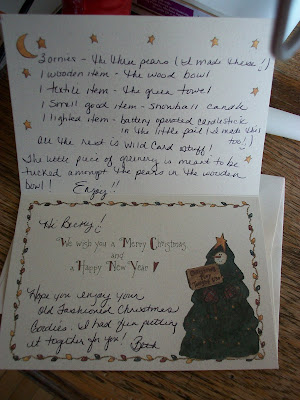 3 ornies - the three pears (I made these!)
1 wooden item - the wood bowl
1 textile item - the green towel
1 smell good item - snowball candle
1 lighted item - battery operated candlestick
in the little pail (I made this
too!)
all the rest is wild card stuff!
The little piece of greenery is meant to be
tucked amongst the pears in the wooden
bowl! Enjoy!!
Hi Becky!
We wish you a Merry Christmas
and
a Happy New Year!
Hope you enjoy your
Old Fashioned Christmas
Goodies. I had fun putting
it together for you! Beth